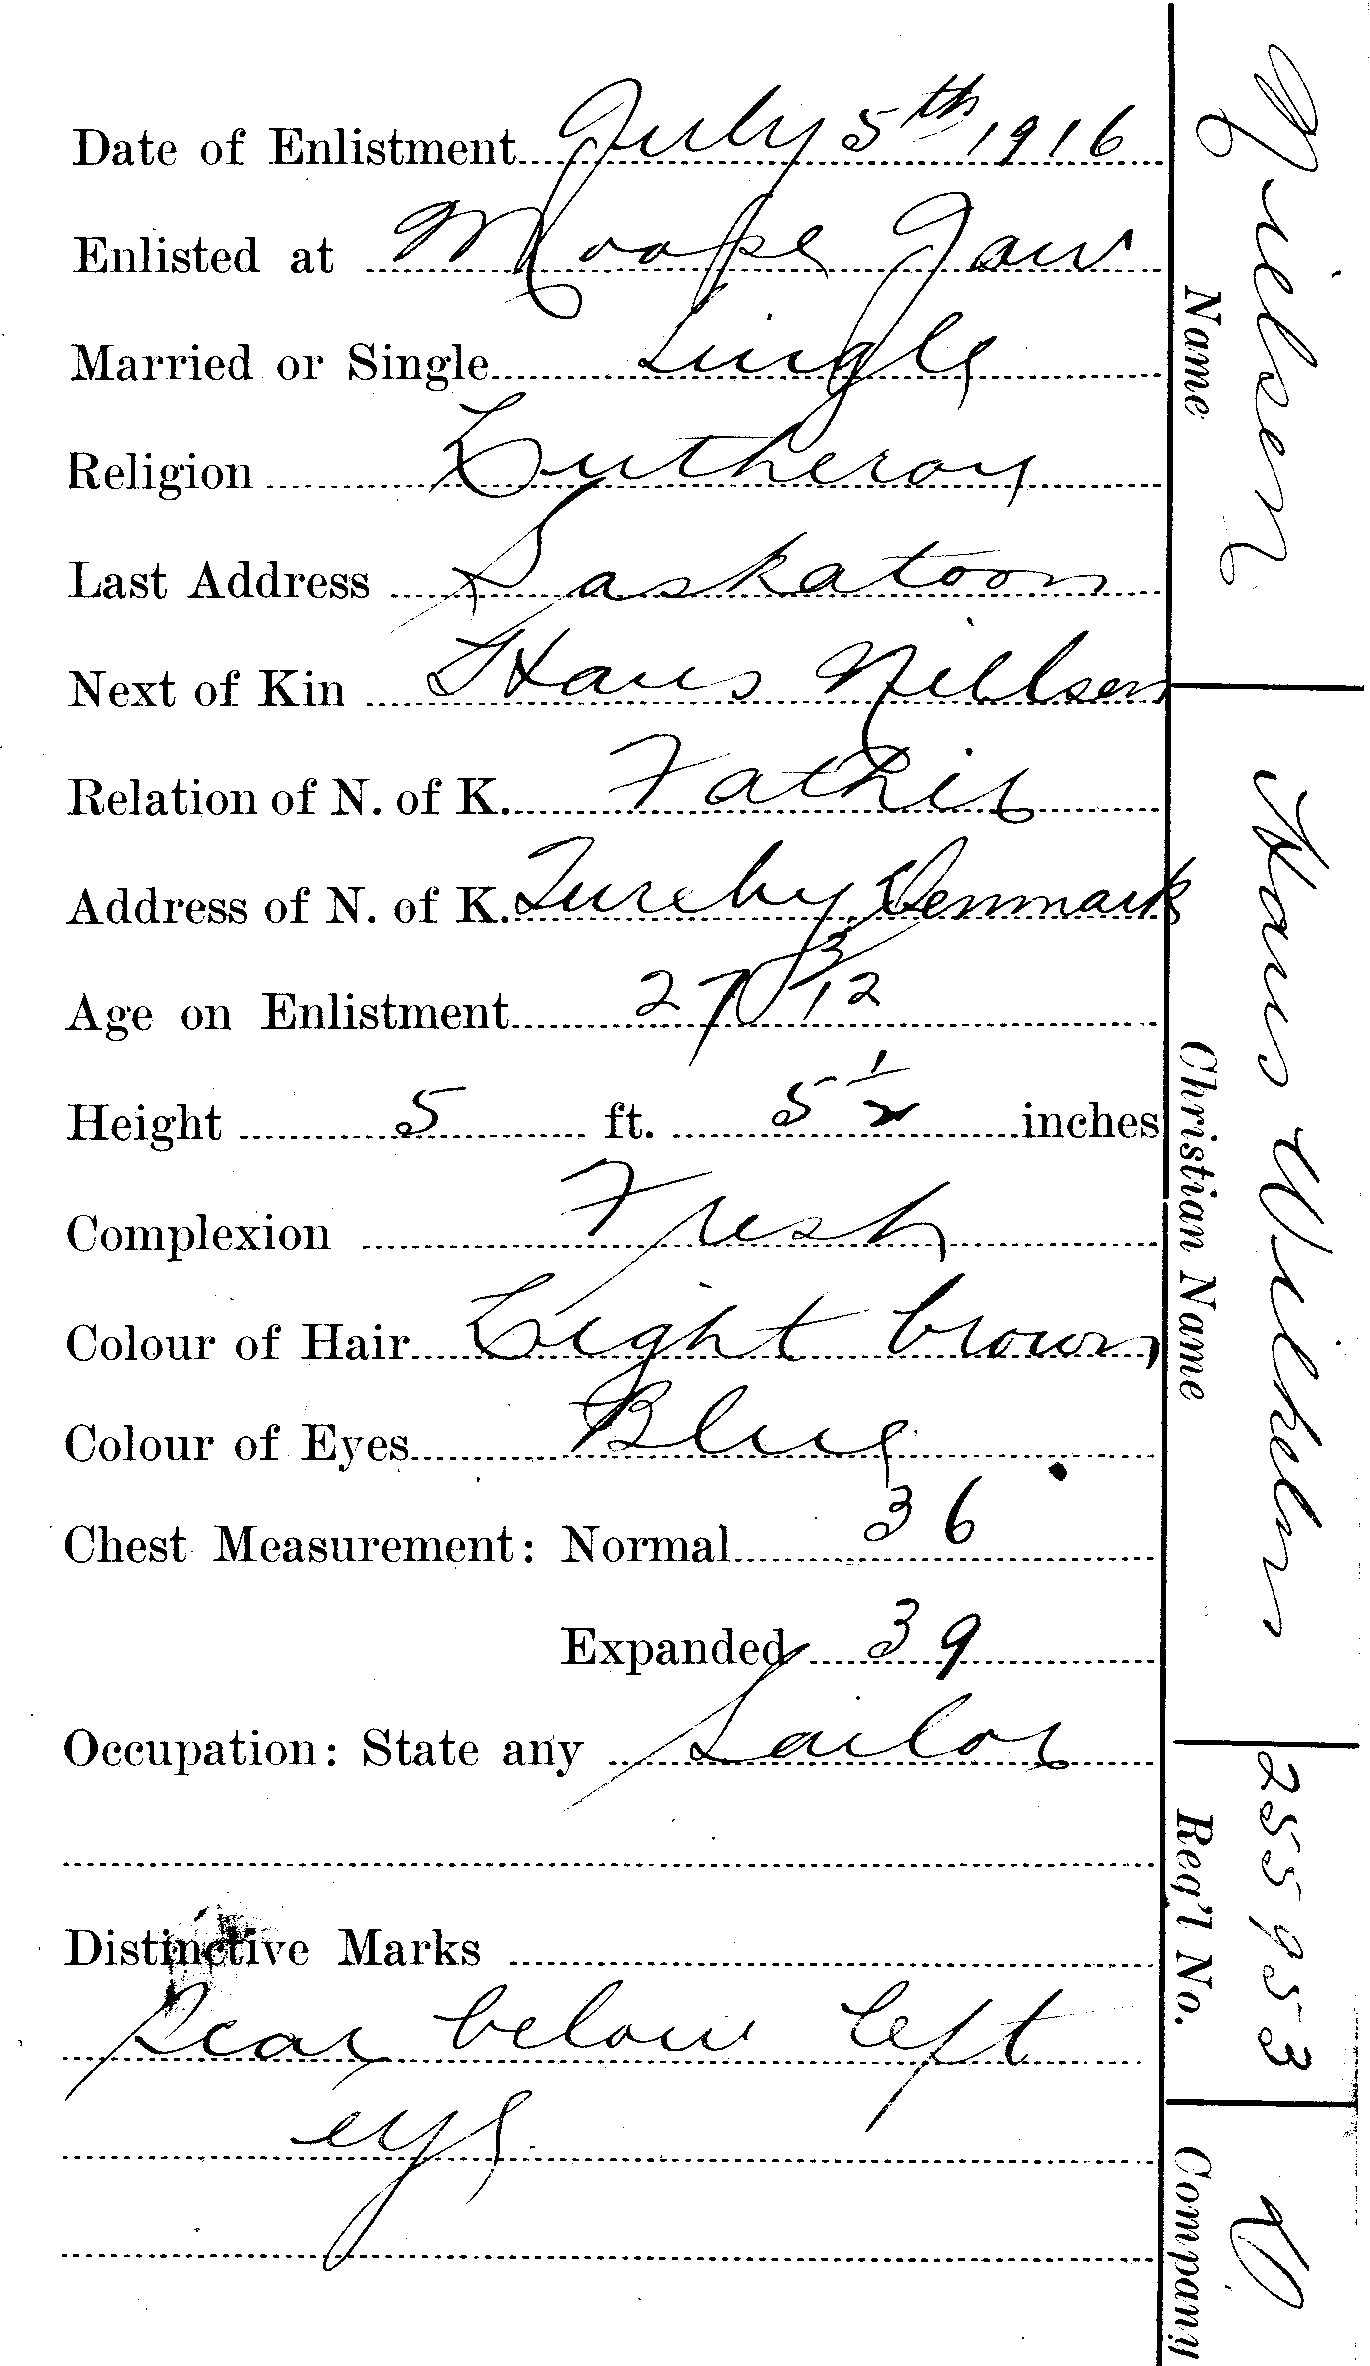 Date of Enlistment July 5th 1916
Enlisted at Moose Jaw
Married or Single Single
Religion Lutheran
Last Address Saskatoon
Next of Kin Hans Nielsen
Relation of N. of K. Father
Address of N. of K. Tureby, Denmark
Age on Enlistment 27 3/12
Height 5 ft. 5 1/2 inches
Complexion Fresh
Colour of Hair Light brown
Colour of Eyes Blue
Chest Measurement: Normal 36
Expanded 39
Occupation: State any Sailor
Distinctive Marks
Scar below left
eye
Nielsen
Name
Hans Wilhelm
Christian Name
255953
Reg'l No.
D
Company